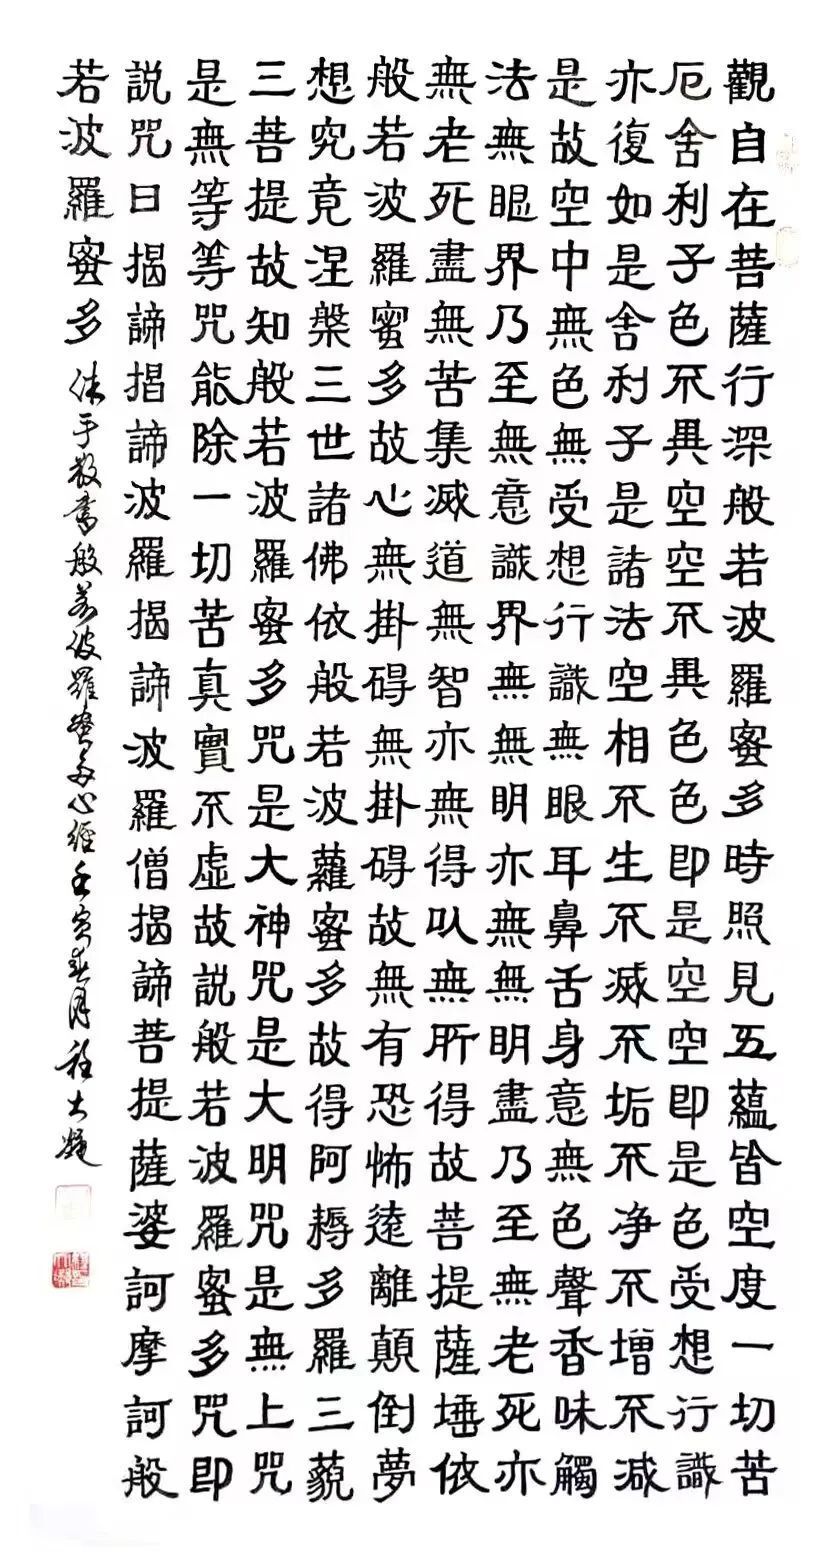 觀自在菩薩行深般若波羅蜜多時照見五蘊皆空度一切苦
厄舍利子色不異空空不異色色即是空空即是色受想行識
亦復如是舍利子是諸法空相不生不滅不垢不净不增不减
是故空中無色無受想行識無眼耳鼻舌身意無色聲香味觸
法無眼界乃至無意識界無無明亦無無明盡乃至無老死亦
無老死盡無苦集滅道無智亦無得以無所得故菩提薩埵依
般若波羅蜜多故心無掛碍無掛碍故無有恐怖遠離顛倒夢
想究竟涅槃三世諸佛依般若波蘿蜜多故得阿耨多羅三藐
三菩提故知般若波羅蜜多咒是大神咒是大明咒是無上咒
是無等等咒能除一切苦真實不虛故説般若波羅蜜多咒即
説咒曰揭諦揭諦波羅揭諦波羅僧揭諦菩提薩婆訶摩訶般
若波羅蜜多
書般若波羅蜜多心經壬寅春月程大